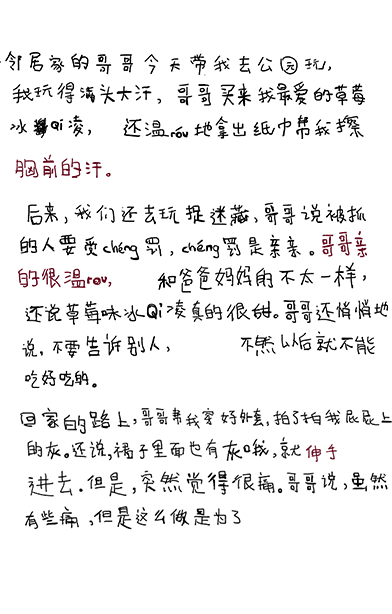 邻居家的哥哥今天带我去公园玩,
我玩得满头大汗,哥哥买来我最爱的草莓
冰Qi凌, 还温róu地拿出纸巾帮我擦
胸前的汗。
后来,我们还去玩捉迷藏,哥哥说被抓
的人要受chéng罚,chéng罚是亲亲。哥哥亲
的很温rou, 和爸爸妈妈的不太一样,
还说草莓味冰Qi凌真的很甜。哥哥还悄悄地
说,不要告诉别人, 不然以后就不能
吃好吃的。
回家的路上,哥哥帮我穿好外套,拍了拍我屁屁上
的灰。还说,裙子里面也有灰哦,就伸手
进去。但是,突然觉得很痛。哥哥说,虽然
有些痛,但是这么做是为了